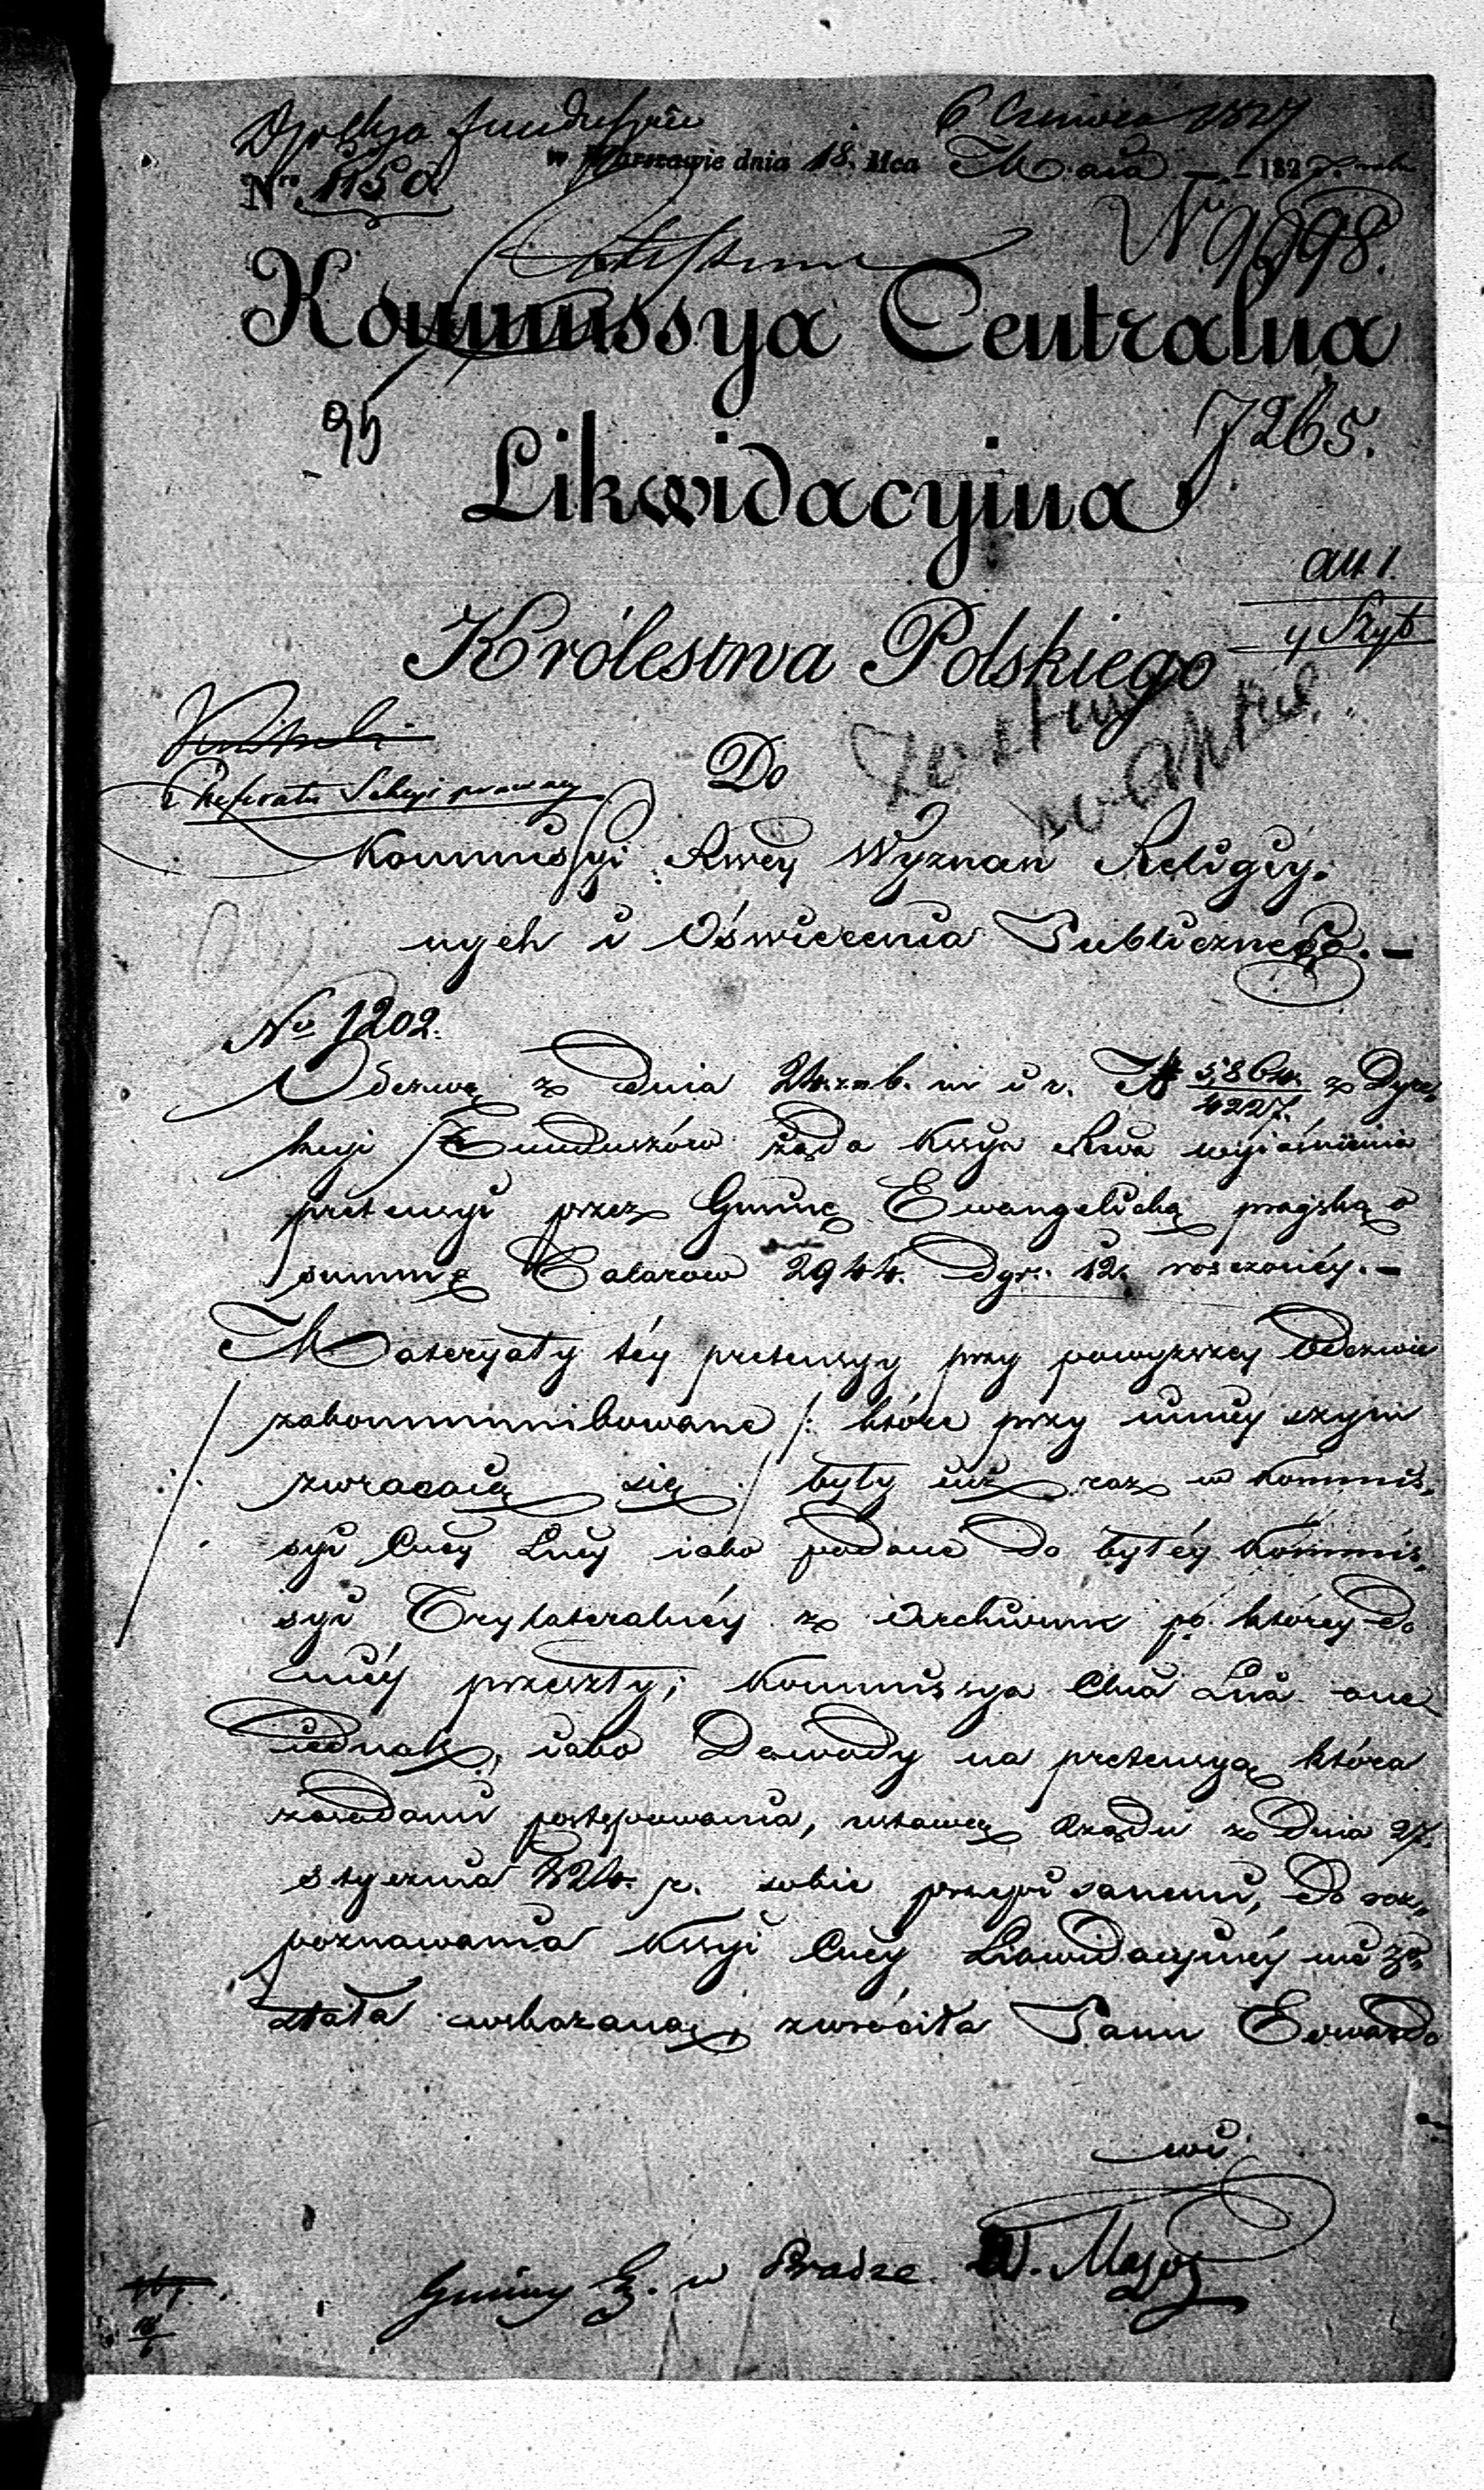 Dyrekcya Funduszów
6 Czerwca 1827
w Warszawie dnia 18. Mca Maia 1827. roku
Nro 1150
No 9998.
Kommissya Centralna
95
7265.
Likwidacyina
Królestwa Polskiego
Do
Referatu Sekcyi prawney
Kommissyi Rwey Wyznań Religiy.
nych i Oświecenia Publicznego.
No 1202.
Odezwą z dnia 24. z. m. i r. N 5864./4227. z Dyre„
kcyi Funduszów żąda Kssya Rwa wyiaśnienia
pretensyi przez Gminę Ewangelicką pragską o
summę Talarow 2944. dgr. 12. rosczonéy.
Materyały téy pretensyy przy powyzszey Odezwie
zakommunikowane /: które przy ninieyszym
zwracaią się :/ były iuż raz w Kommis„
syi Cney Lney iako podane do byłéy Kommis„
syi Trylateralnéy z Archiwum po którey do
niéy przeszły; Kommissya Clna Lna one
iednak, iako Dowody na pretensyą która
zasadami postępowania, ustawą Rządu z dnia 27.
stycznia 824. r. sobie przepisanemi, do roz„
poznawania Kssyi Cney Likwidacyinéy nie zo„
stała wskazaną, zwróciła Panu Edwardo
wi
Gminy E. w Pradze. W. Mayor